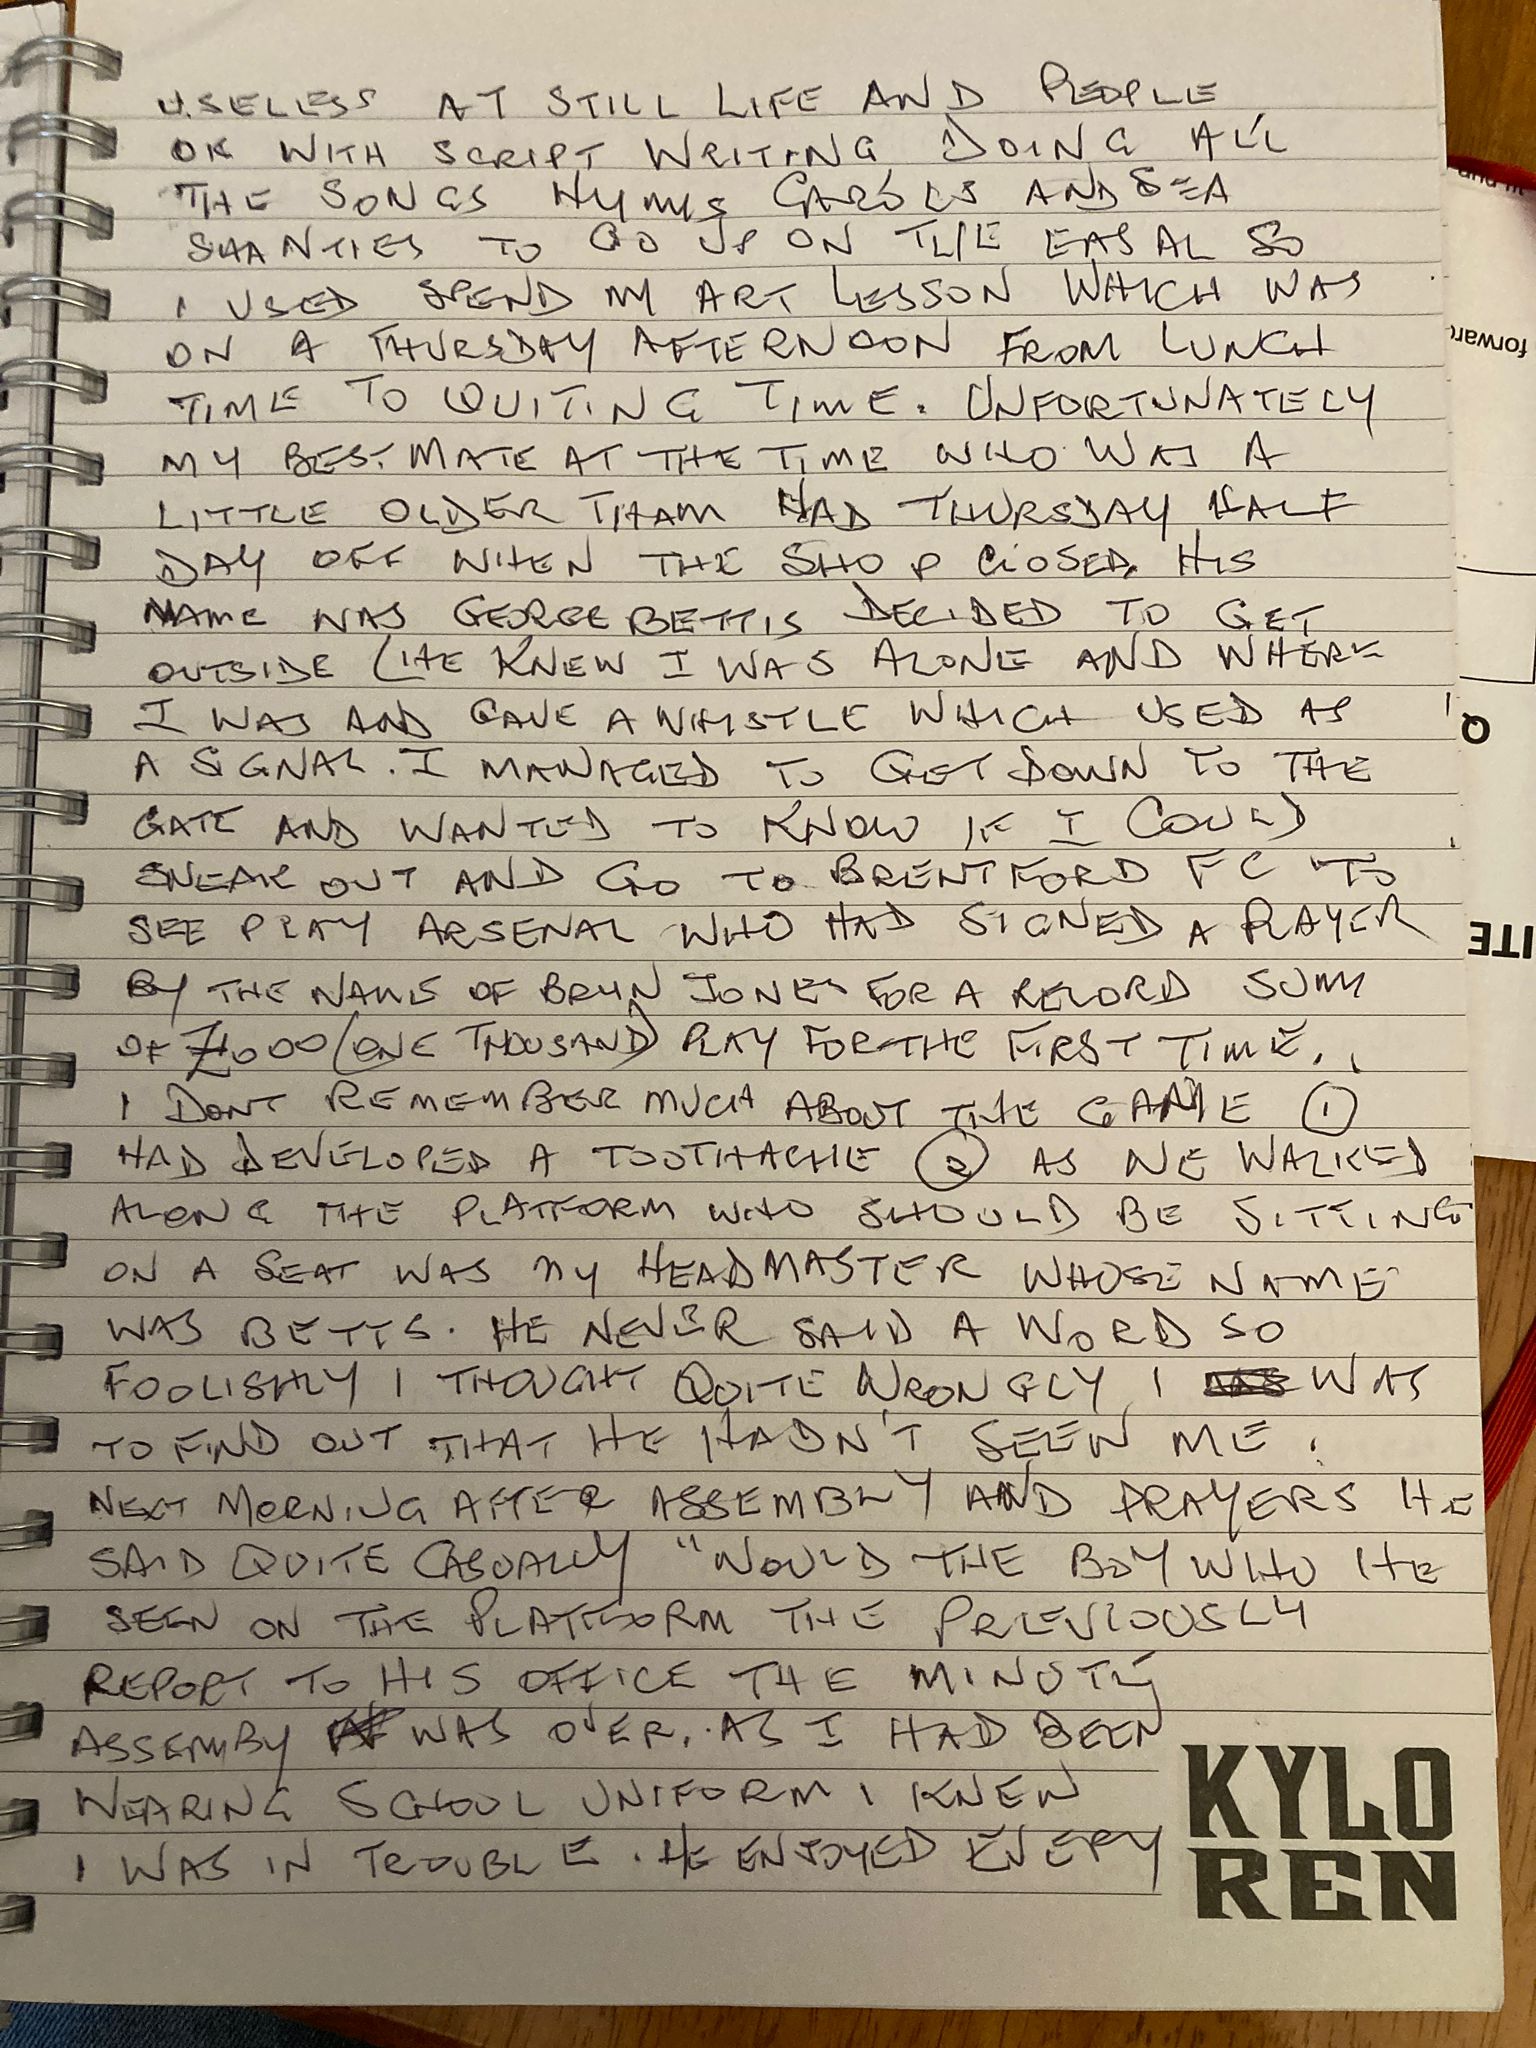 USELESS AT STILL LIFE AND PEOPLE
OK WITH SCRIPT WRITING DOING ALL
THE SONGS HYMNS CAROLS AND SEA
SHANTIES TO GO UP ON THE EASAL SO
I USED SPEND MY ART LESSON WHICH WAS
ON A THURSDAY AFTERNOON FROM LUNCH
TIME TO QUITING TIME. UNFORTUNATELY
MY BEST MATE AT THE TIME WHO WAS A
LITTLE OLDER THAM HAD THURSDAY HALF
DAY OFF WHEN THE SHOP CLOSED. HIS
NAME WAS GEORGE BETTIS DECIDED TO GET
OUTSIDE (HE KNEW I WAS ALONE AND WHERE
I WAS AND GAVE A WHISTLE WHICH USED AS
A SIGNAL. I MANAGED TO GET DOWN TO THE
GATE AND WANTED TO KNOW IF I COULD
SNEAK OUT AND GO TO BRENTFORD FC TO
SEE PLAY ARSENAL WHO HAD SIGNED A PLAYER
BY THE NAME OF BRYN JONES FOR A RECORD SUM
OF £1000 (ONE THOUSAND) PLAY FOR THE FIRST TIME.
I DONT REMEMBER MUCH ABOUT THE GAME ①
HAD DEVELOPED A TOOTHACHE ② AS WE WALKED
ALONG THE PLATFORM WHO SHOULD BE SITTING
ON A SEAT WAS MY HEADMASTER WHOSE NAME
WAS BETTS. HE NEVER SAID A WORD SO
FOOLISHLY I THOUGHT QUITE WRONGLY I WAS
TO FIND OUT THAT HE HADN'T SEEN ME.
NEXT MORNING AFTER ASSEMBLY AND PRAYERS HE
SAID QUITE CASUALLY "WOULD THE BOY WHO HE
SEEN ON THE PLATFORM THE PREVIOUSLY
REPORT TO HIS OFFICE THE MINUTE
ASSEMBY WAS OVER. AS I HAD BEEN
WEARING SCHOOL UNIFORM I KNEW
I WAS IN TROUBLE. HE ENJOYED EVERY
KYLO
REN
forward
Q
ITE